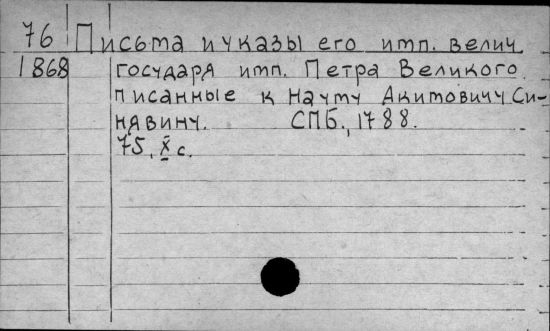 76 Письма и указы его имп. велич.
1868 государя имп. Петра Великого
писанные к Науму Акимовичу Си-
нявину. СПб., 1788.
75, X с.